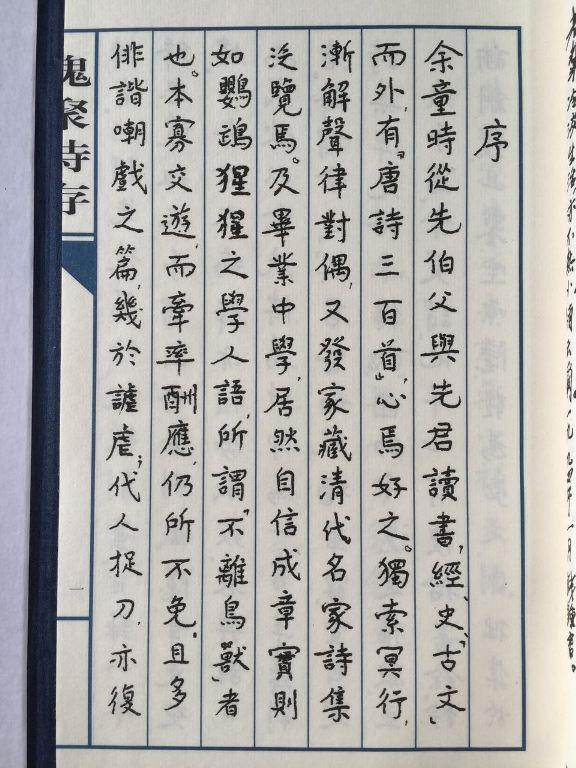 序
余童時從先伯父與先君讀書，經、史、「古文」
而外，有「唐詩三百首」，心焉好之。獨索冥行，
漸解聲律對偶，又發家藏清代名家詩集
泛覽焉。及畢業中學，居然自信成章，實則
如鸚鵡猩猩之學人語，所謂「不離鳥獸」者
也。本寡交遊，而牽率酬應，仍所不免。且多
俳諧嘲戲之篇，幾於謔虐；代人捉刀，亦復
槐聚詩存
一